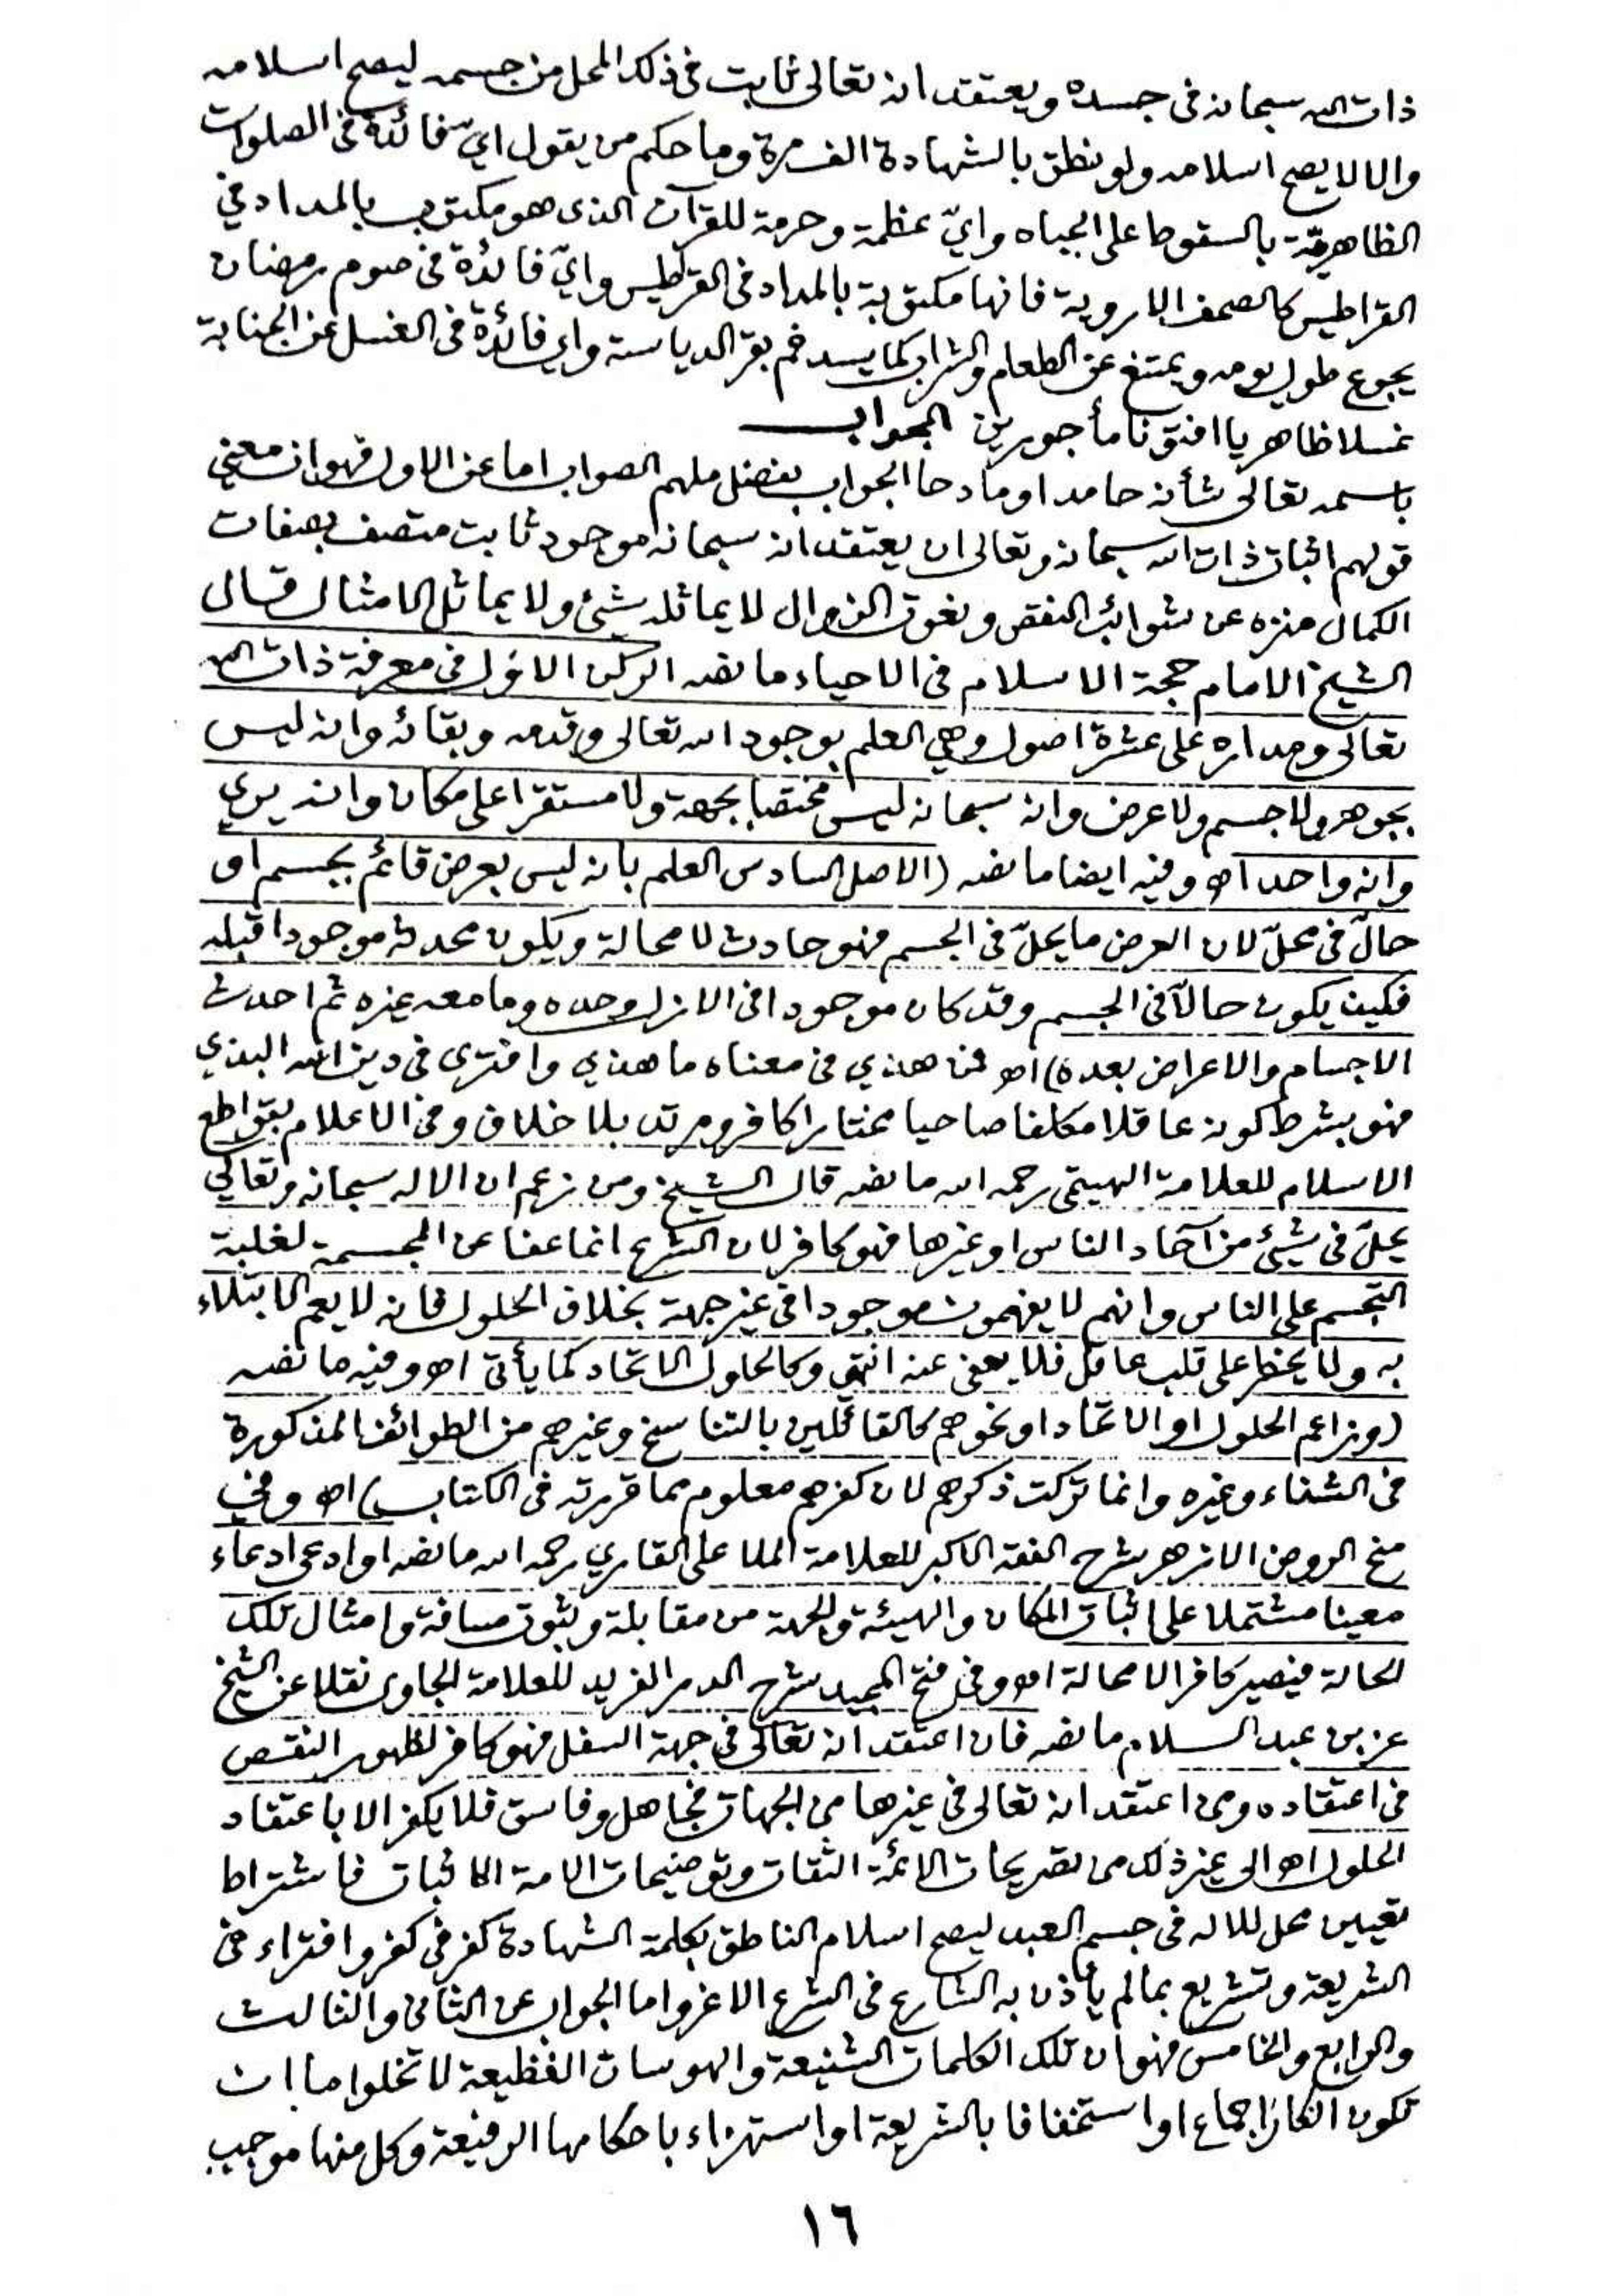 ذات الله سبحانه فى جسده ويعتقد انه تعالى ثابت فى ذلك المحل من جسمه ليصح اسلامه
والا لا يصح اسلامه ولو نطق بالشهادة الف مرة وما حكم من يقول اىّ فائدة فى الصلوات
الظاهريّة بالسقوط على الجباه واىّ عظمة وحرمة للقرآن الذى هو مكتوب بالمداد في
القراطيس كالصحف الاروبية فانها مكتوبة بالمداد فى القرطيس واىّ فائدة فى صوم رمضان
يجوع طول يومه ويمتنع عن الطعام والشراب كما يسد فم بقر الدياسة واى فائدة فى الغسل عن الجنابة
غسلا ظاهريا افتونا مأجورين الجواب
باسمه تعالى شأنه حامدا ومادحا الجواب بفضل ملهم الصواب اما عن الاول فهو ان معنى
قولهم اثبات ذات الله سبحانه وتعالى ان يعتقد انه سبحانه موجود ثابت متصف بصفات
الكمال منزه عن شوائب النقص ونعوت الزوال لا يماثله شيئ ولا يماثل الامثال قال
الشيخ الامام حجة الاسلام فى الاحياء ما نصه الركن الاول فى معرفة ذات الله
تعالى ومداره على عشرة اصول وهي العلم بوجود الله تعالى وقدمه وبقائه وانه ليس
بجوهر ولا جسم ولا عرض وانه سبحانه ليس مختصا بجهة ولا مستقرا على مكان وانه يري
وانه واحد اه وفيه ايضا ما نصه (الاصل السادس العلم بانه ليس بعرض قائم بجسم او
حالّ فى محلّ لان العرض ما يحلّ فى الجسم فهو حادث لا محالة ويكون محدثه موجودا قبله
فكيف يكون حالّا فى الجسم وقد كان موجودا فى الازل وحده وما معه غيره ثم احدث
الاجسام والاعراض بعده) اه فمن هذي فى معناه ما هذي وافترى فى دين الله البذي
فهو بشرط كونه عاقلا مكلفا صاحيا مختارا كافر ومرتد بلا خلاف وفى الاعلام بقواطع
الاسلام للعلامة الهيتمى رحمه الله ما نصه قال الشيخ ومن زعم ان الاله سبحانه وتعالي
يحلّ فى شيئ من آحاد الناس او غيرها فهو كافر لان الشرع انما عفا عن المجسمة لغلبة
التجسم على الناس وانهم لا يفهمون موجودا فى غير جهة بخلاف الحلول فانه لا يعم الابتلاء
به ولا يخطر على قلب عاقل فلا يعفى عنه انتهى وكالحلول الاتحاد كما يأتى اه وفيه ما نصه
(وزاعم الحلول او الاتحاد او نحوهم كالقائلين بالتناسخ وغيرهم من الطوائف المذكورة
فى الشفاء وغيره وانما تركت ذكرهم لان كفرهم معلوم مما قررته فى الكتاب) اه وفي
منح الروض الازهر شرح الفقه الاكبر للعلامة الملا على القاري رحمه الله ما نصه او ادعى ادعاء
معينا مشتملا على اثبات المكان والهيئة والجهة من مقابلة وثبوت مسافة وامثال تلك
الحالة فيصير كافرا لا محالة اه وفى فتح المجيد شرح الدر الفريد للعلامة الجاوى نقلا عن الشيخ
عز بن عبد السلام ما نصه فان اعتقد انه تعالى فى جهة السفل فهو كافر لظهور النقص
فى اعتقاده ومن اعتقد انه تعالى فى غيرها من الجهات فجاهل وفاسق فلا يكفر الا باعتقاد
الحلول اه الى غير ذلك من تصريحات الائمة الثقات وتوضيحات الامة الاثبات فاشتراط
تعيين محل للاله فى جسم العبد ليصح اسلام الناطق بكلمة الشهادة كفر فى كفر وافتراء فى
الشريعة وتشريع بما لم يأذن به الشارع فى الشرع الاغر واما الجواب عن الثانى والثالث
والرابع والخامس فهو ان تلك الكلمات الشنيعة والهوسات الفظيعة لا تخلوا ما ان
تكون انكارا جماع او استخفافا بالشريعة او استهزاء باحكامها الرفيعة وكل منها موجب
١٦